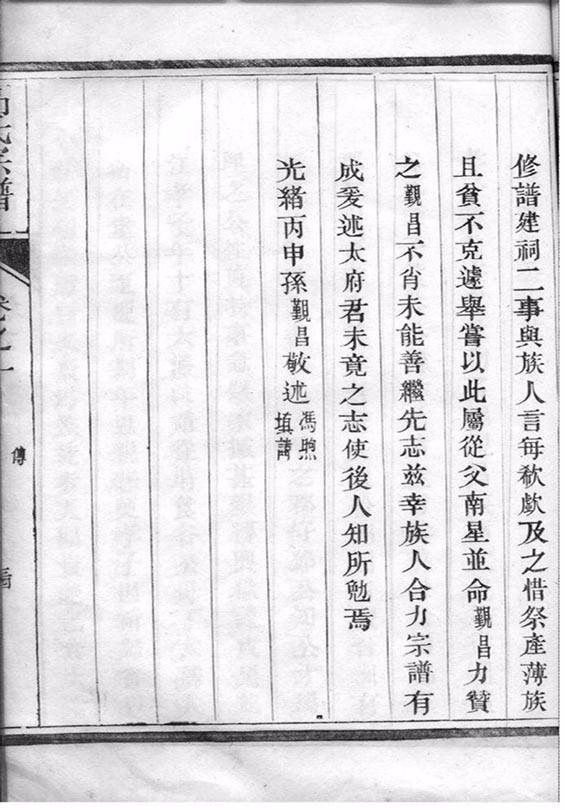 修譜建祠二事與族人言每欷歔及之惜祭產薄族
且貧不克遽舉嘗以此屬從父南星並命觀昌力贊
之觀昌不肖未能善繼先志茲幸族人合力宗譜有
成爰述太府君未竟之志使後人知所勉焉
光緒丙申孫觀昌敬述馮煦
填諱
氏宗譜
卷之
傳